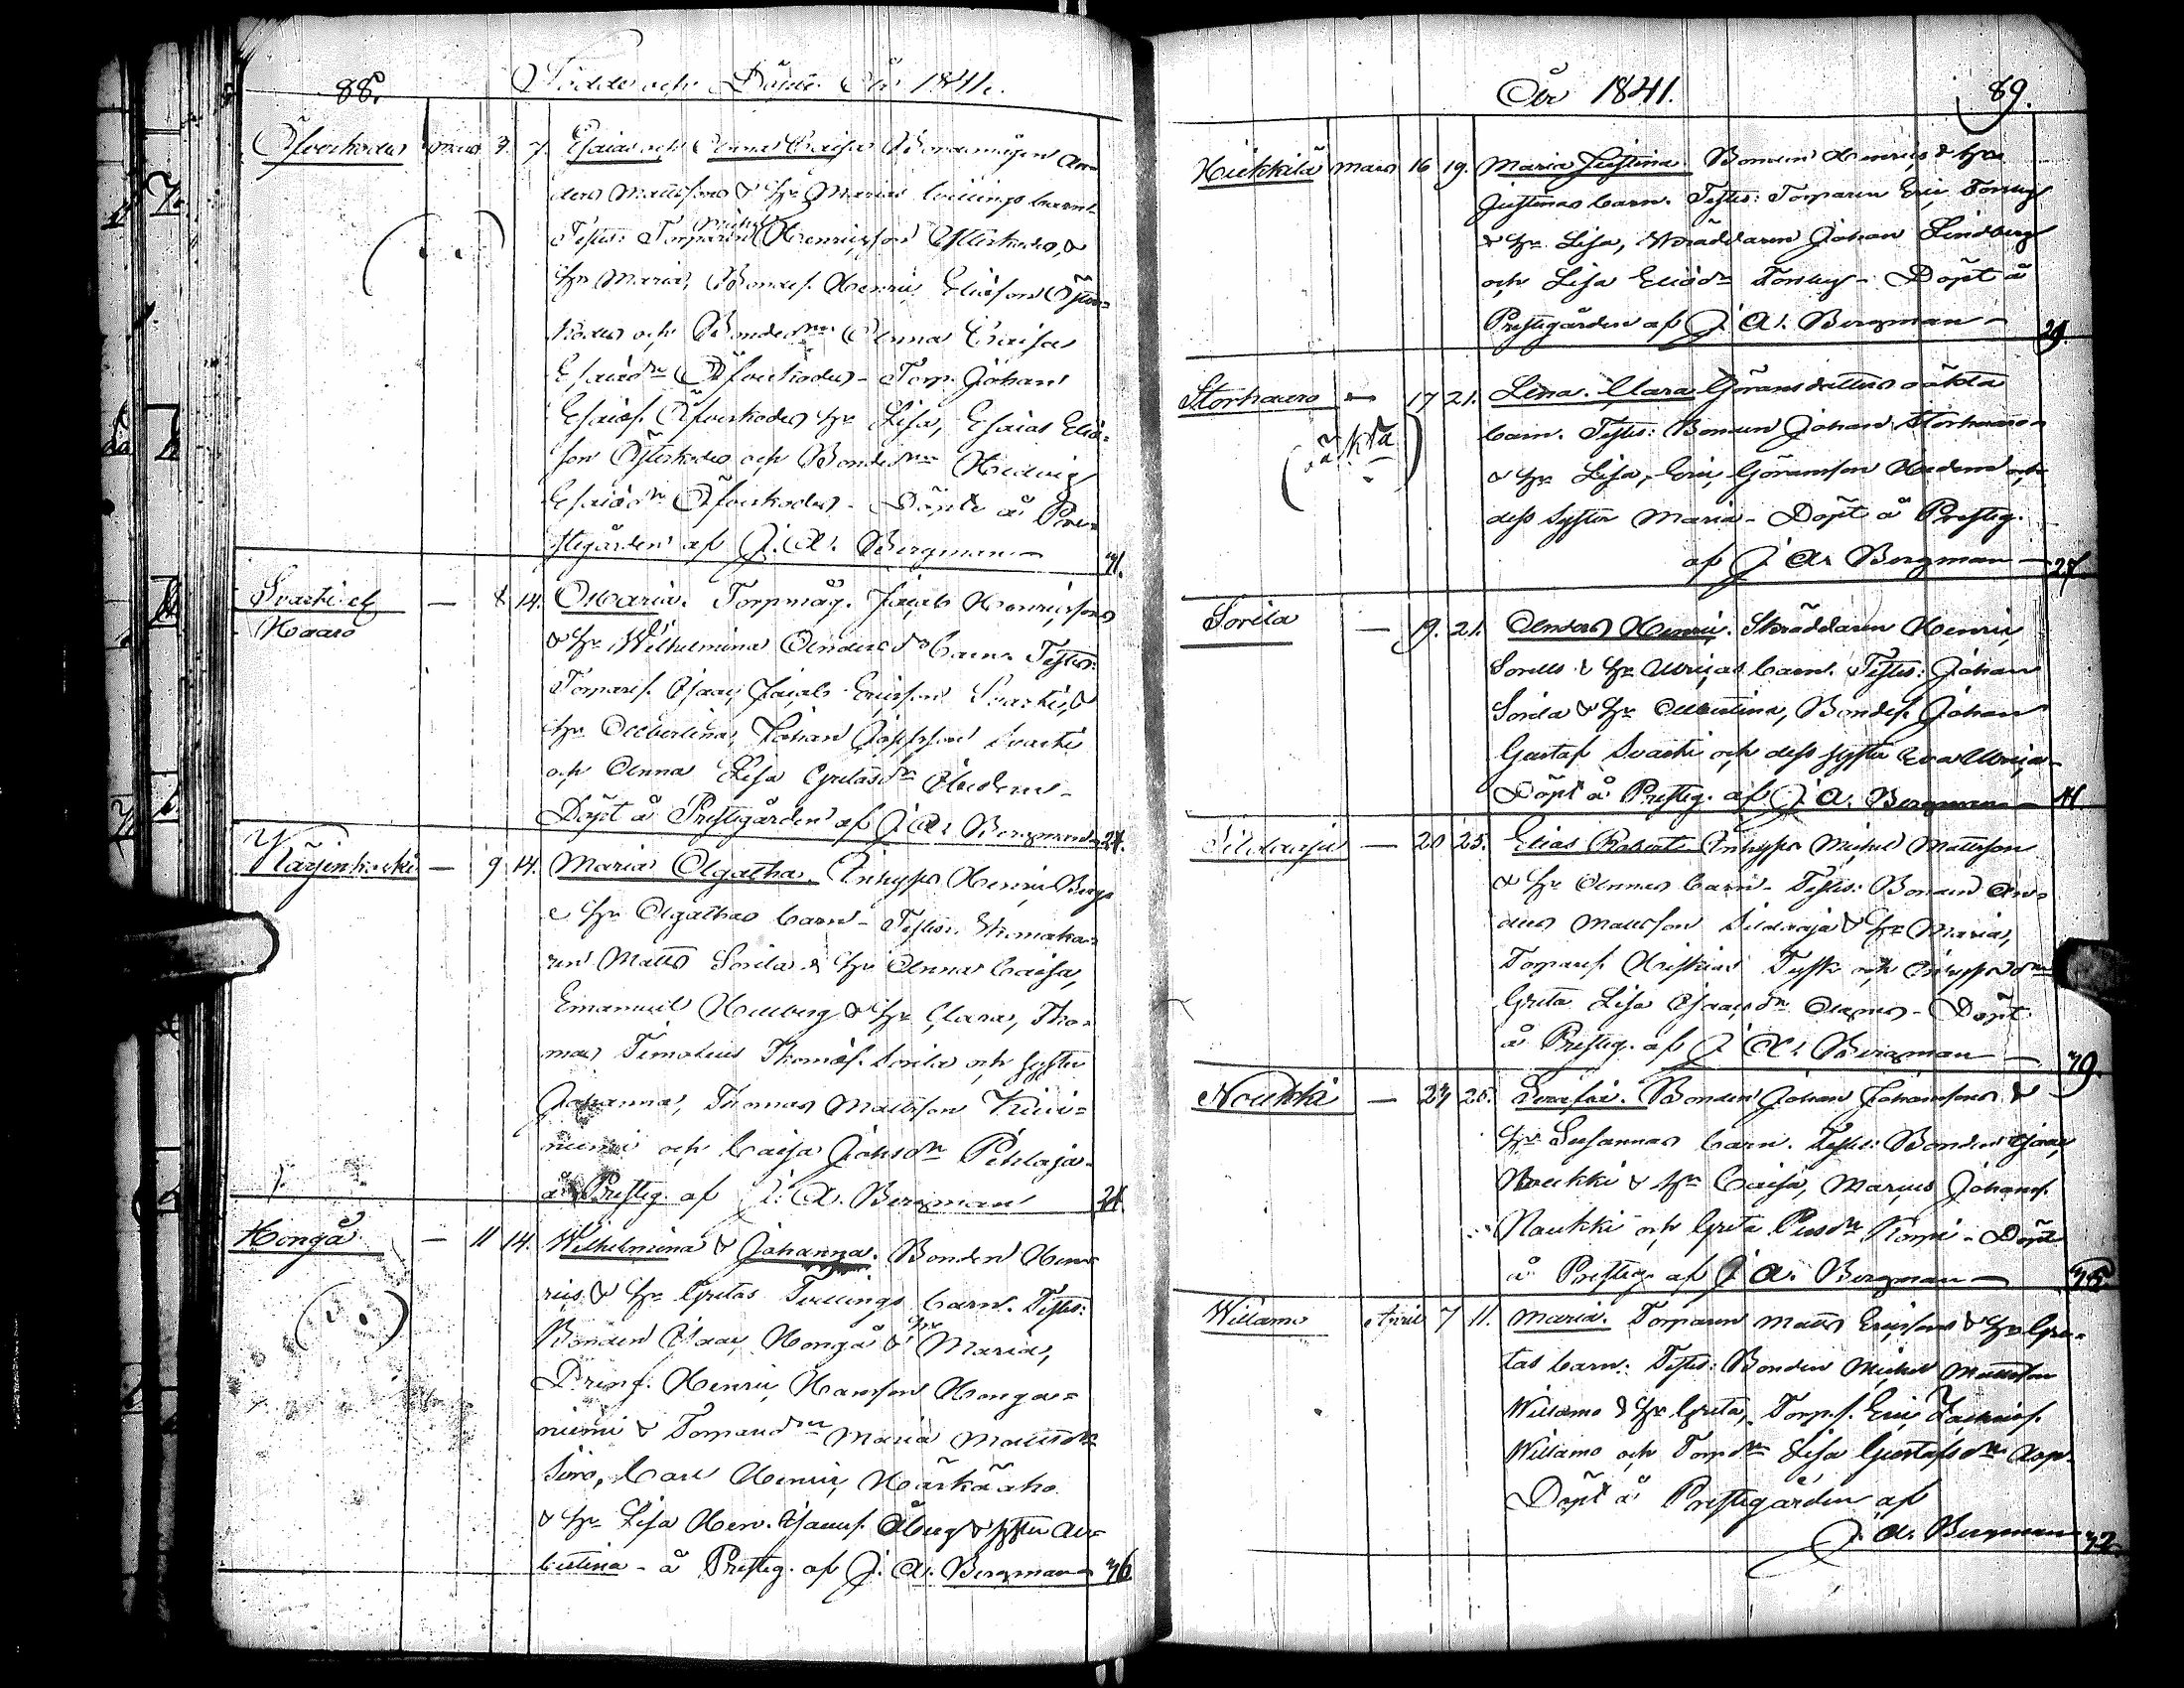 88. Födde och Döpte År 1841.
Öfverkodes Mars 3. 7. Esaias och Anna Caisa Bondmågen An-
ders Mattssons & Hu Marias tvillings barn.
Testes: Torparen Michel Henricsson Ytterkodes, &
Hu Maria, Bondes. Henric Eliasson Öfver-
kodes och Bonded:n Anna Caisa
Esaiæd:r Öfverkodes - Torp. Johan
Esaias. Öfverkodes Hu Lisa, Esaias Elias-
son Ytterkodes och Bonded:n Hedvig
Esaiæd:r Öfverkodes - Döpte å Pre-
stegården af J. A. Bergman - 31.
Svarti el. — 8 14. Maria. Torpmåg. Jacob Henricssons
Haaro
& Hu Wilhelmina Andersd:r barn. Testes:
Torpares. Isaac Jacob Ericsson Svarti, &
Hu Albertina, Johan Josefsson Svarti
och Anna Lisa Gretasd:r
Döpt å Prestegården af J. A. Bergman 24.
Kärjenkoski — 9 14. Maria Agatha. Inhyses Henric Bergs
& Hu Agathas barn - Testes. Skomaka-
ren Matts Sorila & Hu Anna Caisa,
Emanuel Hellberg & Hu Clara, Tho-
mas Timoteus Thomæs. Sorila och syster
Johanna, Thomas Mattsson Kivi-
niemi och Caisa Johansd:r Pihlaja-
å Presteg. af J. A. Bergman 24
Hongå — 11 14. Wilhelmina & Johanna. Bonden Hen-
rics & Hu Gretas Tvillings barn. Testes:
Bonden Isaac Hongå & Hu Maria,
Dräng. Henric Hansson Honga-
niemi & Torpared:r Maria Mattsd:r
Siro, Carl Henric Härkäaho
& Hu Lisa Hen. Isaacs. Åberg & syster Al-
bertina - å Presteg. af J. A. Bergman 36
År 1841. 89.
Heikkilä Mars 16 19. Maria Justina. Bonden Henrics & Hu
Justinas barn. Testes: Torparen Eric Forsby
& Hu Lisa, Skräddaren Johan Lindberg
och Lisa Eliæd:r Forsby - Döpt å
Prestegården af J. A. Bergman - 29.
Storhaaro — 17 21. Lena Clara Göransdotters oäkta
(oäkta)
barn. Testes: Bonden Johan Storhaaro
& Hu Lisa, Eric Göransson Hedens och
dess Syster Maria - Döpt å Presteg.
af J. A. Bergman - 27
Sorila — 19. 21. Anders Henric. Skräddaren Henric
Sorills & Hu Ulricas barn. Testes: Johan
Sorila & Hu Albertina, Bondes. Johan
Gustaf Svarti och dess syster Eva Ulrica
Döpt å Presteg. af J. A. Bergman - 41
Sildaraja — 20 25. Elias Robert Inhyses Michel Mattsson
& Hu Annas barn - Testes: Bonden An-
ders Mattsson Sildaraja & Hu Maria,
Torpares. Tysk och Inhysesd:r
Greta Lisa Isaacsd:r - Döpt
å Presteg. af J. A. Bergman — 39.
Noukki — 24 25. Bonden Johan Johanssons &
Hu Susannas barn. Testes: Bonden Isaac
Noukki & Hu Caisa, Marius Johans.
Noukki och Greta Korpi - Döpt
å Presteg. af J. A. Bergman — 35
Willamo April 7 11. Maria. Torparen Matts Ericssons & Hu Gre-
tas barn: Testes: Bonden Michel Mattsson
Willamo & Hu Greta, Torp.s. Eric Zachrias.
Willamo och Torpd:r Lisa Gustafsd:r
Döpt å Prestegården af
J. A. Bergman 32